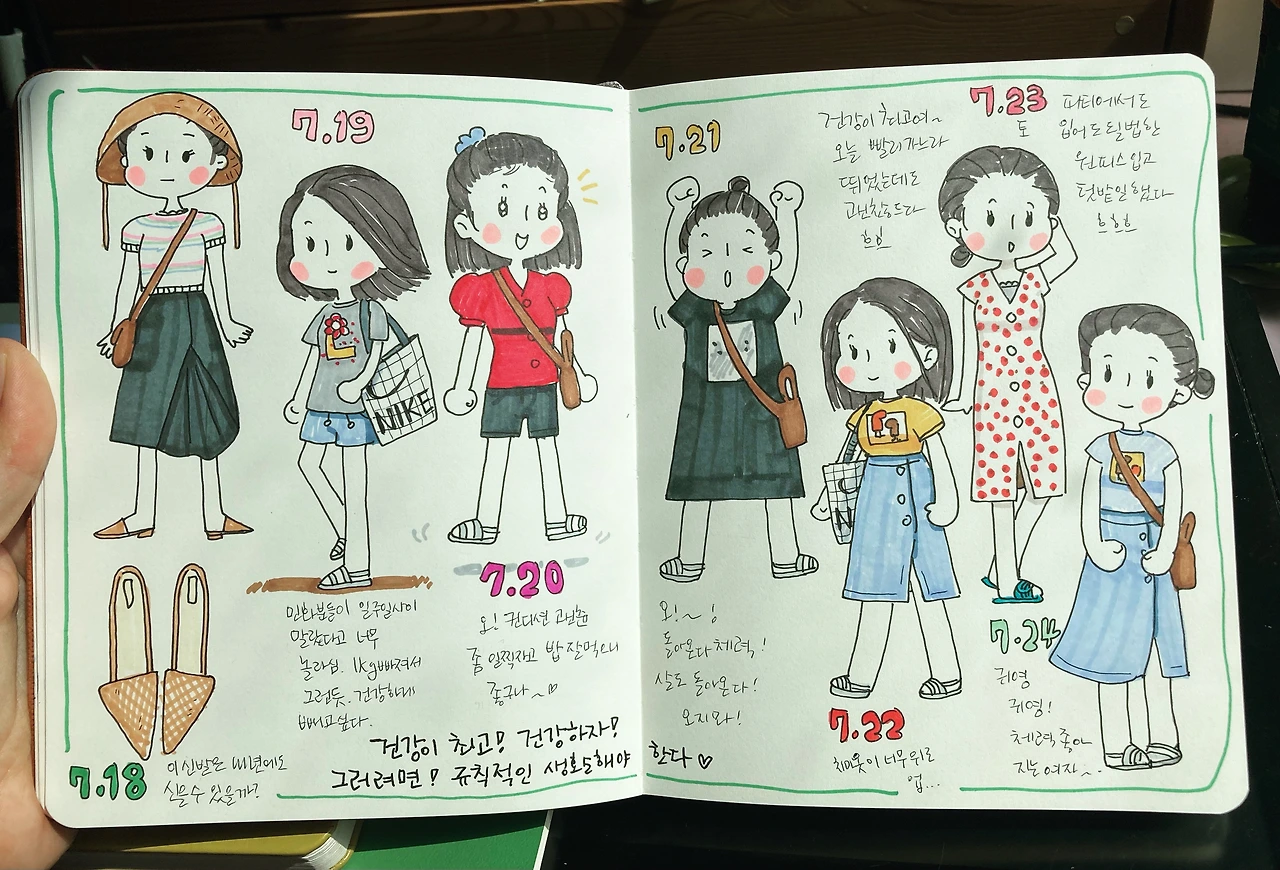 7.18
이 신발은 내년에도
신을 수 있을까?
7.19
NIKE
민화분들이 일주일사이
말랐다고 너무
놀라심. 1kg빠져서
그런듯. 건강하게
빼고싶다.
7.20
오! 컨디션 괜춘
좀 일찍자고 밥 잘먹으니
좋구나~♡
건강이 최고! 건강하자!
그러려면! 규칙적인 생활을해야 한다 ♡
7.21
오!~!
돌아온다 체력!
살도 돌아온다!
오지마!
건강이 최고여~
오늘 빨리가느라
뛰었는데도
괜찮드다
흐흐
7.22
N
치마옷이 너무 위로
업...
7.23
토
파티에서도
입어도 될법한
원피스입고
텃밭일했다
흐흐흐
7.24
귀영
귀영!
체력 좋아
지는 여자~..